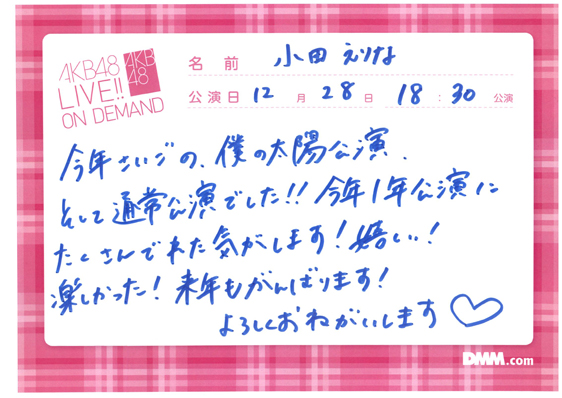 AKB48
LIVE!!
ON DEMAND
AKB
48
名前 小田えりな
公演日 12月28日 18:30公演
今年さいごの、僕の太陽公演、
そして通常公演でした!! 今年1年公演に
たくさんでれた気がします!嬉しい!
楽しかった!来年もがんばります!
よろしくおねがいします♡
DMM.com